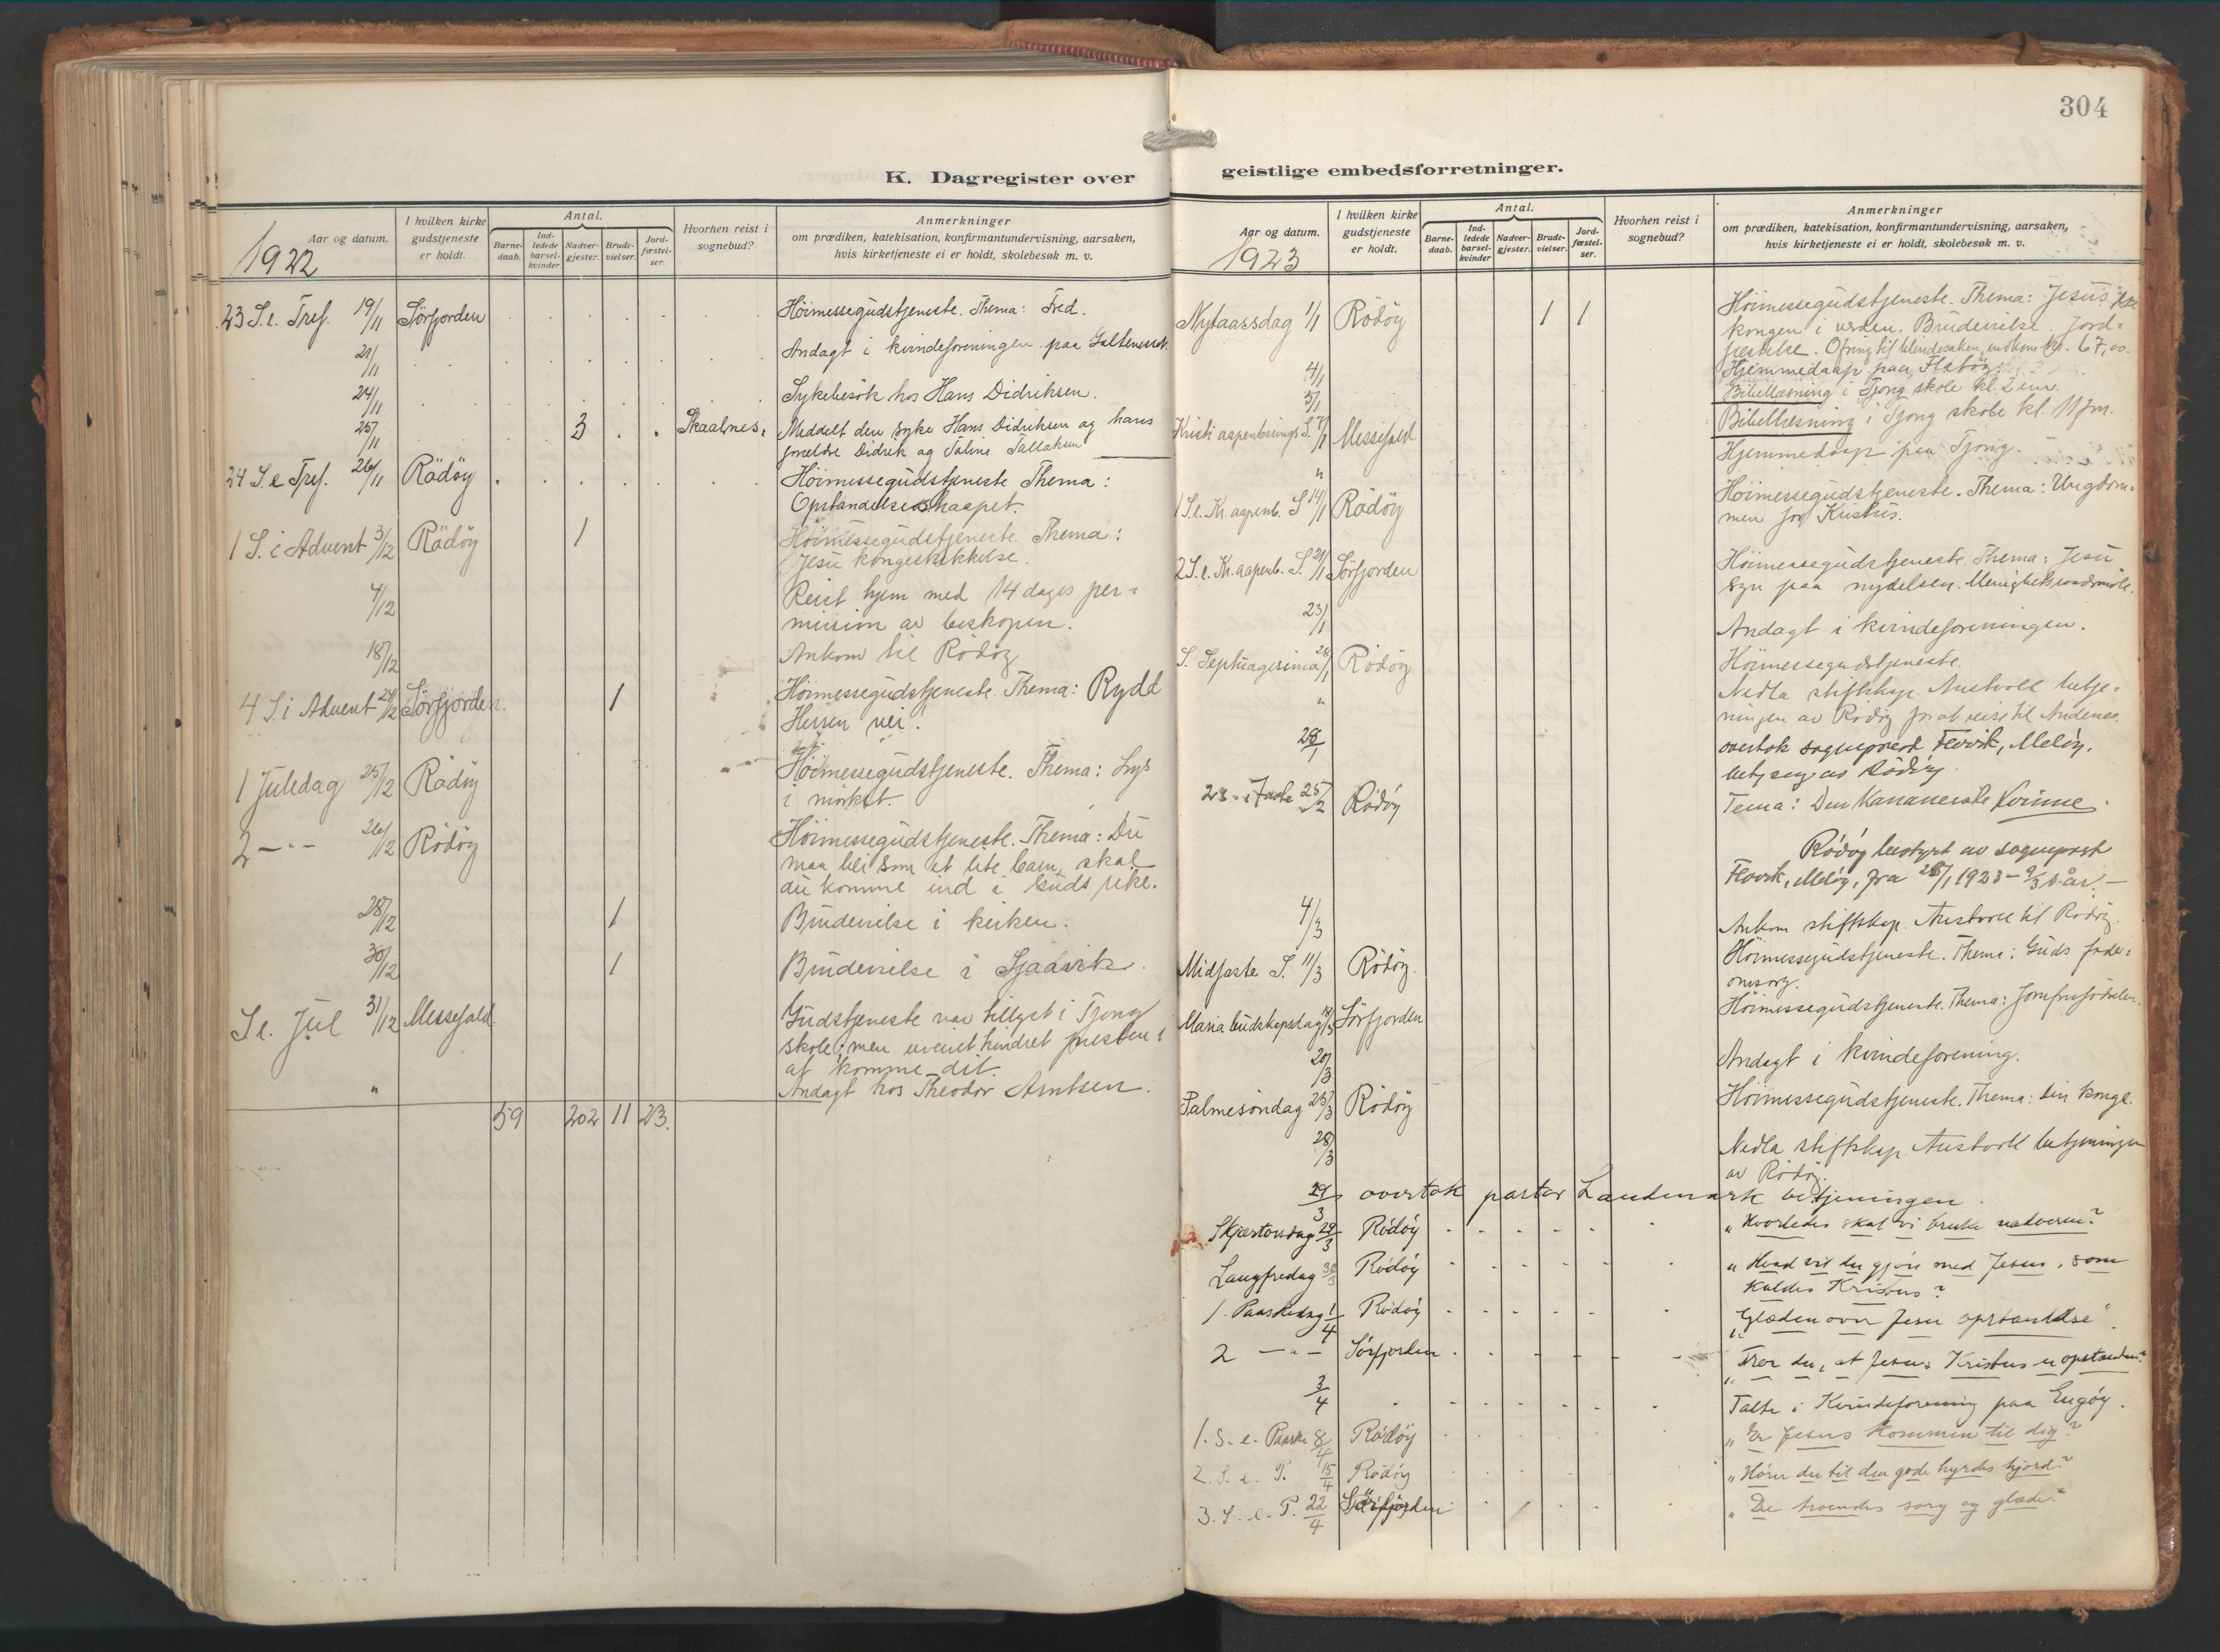 K. Dagregister over
Aar og datum.
1922
I hvilken kirke
gudstjeneste
er holdt.
Antal.
Barne-
daab.
Ind-
ledede
barsel-
kvinder.
Nadver-
gjester.
Brude-
vielser.
Jord-
fæstel-
ser.
Hvorhen reist i
sognebud?
Anmerkninger
om prædiken, katekisation, konfirmantundervisning, aarsaken,
hvis kirketjeneste ei er holdt, skolebesøk m. v.
23 S. e. Tref. 19/11 Sörfjorden Höimessegudstjeneste. Thema: Fred.
21/11 Andagt i kvindeforeningen paa
24/11 Sykebesök hos Hans Didriksen.
25/11 3 Skaalnes. Meddelt den syke Hans Didriksen og hans
foreldre Didrik og
24 S. e Tref. 26/11 Rödöy Höimessegudstjeneste Thema:
Opstandelseshaapet.
1 S. i Advent 3/12 Rödöy 1 Höimessegudstjeneste. Thema:
Jesu kongeskikkelse.
4/12 Reist hjem med 14 dages per-
mission av biskopen.
18/12 Ankom til Rödöy
4 S. i Advent 24/12 Sörfjorden. 1 Höimessegudstjeneste. Thema: Rydd
Herren vei!
1 Juledag 25/12 Rödöy Höimessegudstjeneste. Thema: Lys
i mörket.
2 - " - 26/12 Rödöy Höimessegudstjeneste. Thema: Du
maa bli som et lite barn, skal
du komme ind i Guds rike.
28/12 1 Brudevielse i kirken.
30/12 1 Brudevielse i
S. e. Jul 31/12 Messefald. Gudstjeneste var tillyst i Tjong
skole; men uveiret hindret presten i
at komme dit.
" Andagt hos Theodor Arntsen.
59 202 11 23.
304
geistlige embedsforretninger.
Aar og datum.
1923
I hvilken kirke
gudstjeneste
er holdt.
Antal.
Barne-
daab.
Ind-
ledede
barsel-
kvinder
Nadver-
gjester.
Brude-
vielser.
Jord-
fæstel-
ser.
Hvorhen reist i
sognebud?
Anmerkninger
om prædiken, katekisation, konfirmantundervisning, aarsaken,
hvis kirketjeneste ei er holdt, skolebesøk m. v.
Nytaarsdag 1/1 Rödöy 1 1 Höimessegudstjeneste. Thema: Jesus
kongen i verden. Brudevielse. Jord-
fæstelse. Ofring til blindesaken, kr. 67,00.
4/1 Hjemmedaap paa
5/1 Bibellæsning i Tjong skole kl. 2 em.
Kristi aapenbarings S. 7/1 Messefald Bibellæsning i Tjong skole kl. 11 fm.
" Hjemmedaap paa Tjong.
1 S. e. Kr. aapenb. S 14/1 Rödöy Höimessegudstjeneste. Thema: Ungdom-
men for Kristus.
2 S. e. Kr. aapenb. S. 21/1 Sörfjorden Höimessegudstjeneste. Thema: Jesu
syn paa nydelsen. Menighetsraadsmöte.
23/1 Andagt i kvindeforeningen.
S. Septuagesima 28/1 Rödöy Höimessegudstjeneste.
" Nedla stiftskap. Austvoll betje-
ningen av Rödöy for at reise til Andenes.
28/1 overtok sogneprest Flovik, Melöy,
betj. av Rödöy.
2 S. i Faste 25/2 Rödöy Tema: Den Kananeiske Kvinne.
Rödöy bestyrt av sogneprest
Flovik, Melöy, fra 28/1 1923 - 9/3 s. år. -
4/3 Ankom stiftskap. Austvoll til Rödöy.
Midfaste S. 11/3 Rödöy. Höimessegudstjeneste. Thema: Guds fader-
omsorg.
Maria budskapsdag 18/3 Sörfjorden Höimessegudstjeneste. Thema: Jomfrufödselen.
20/3 Andagt i kvindeforening.
Palmesöndag 25/3 Rödöy Höimessegudstjeneste. Thema: Din konge.
28/3 Nedla stiftskap. Austvoll betjeningen
av Rödöy.
29/3 overtok pastor Landmark betjeningen.
Skjærtorsdag 29/3 Rödöy "Hvorledes skal vi bruke nadveren?"
Langfredag 30/3 Rödöy "Hvad vil du gjöre med Jesus, som
kaldes Kristus?
1. Paaskedag 1/4 Rödöy "Glæden over Jesu opstandelse".
2 - " - Sörfjorden "Tror du, at Jesus Kristus er opstanden?"
3/4 Talte i Kvindeforening paa Engöy.
1. S. e. Paaske 8/4 Rödöy "Er Jesus kommen til dig?"
2. S. e. P. 15/4 Rödöy "Hörer du til den gode hyrdes hjord?"
3. S. e. P. 22/4 Sörfjorden "De troendes sorg og glæde."